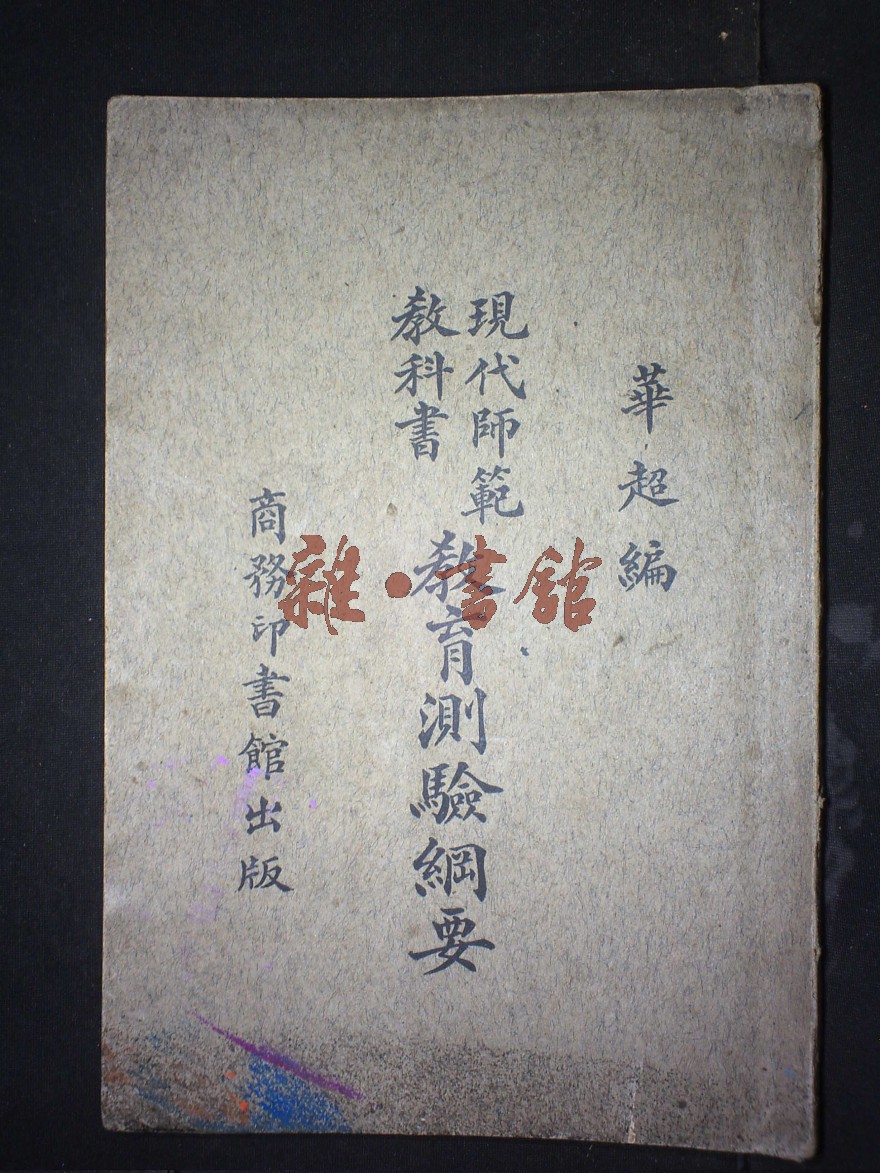 華超編
現代師範
教科書
教育測驗綱要
商務印書館出版
雜·書館